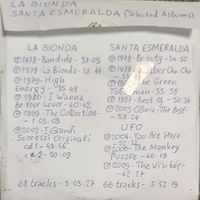 LA BIONDA
SANTA ESMERALDA (Selected Albums)
LA BIONDA
1978-Bandido-37:05
1978-La Bionda-38:
1979-High
Energy-35:48
1980-I Wanna
Be Your Lover-40:42
1999-The Collection-
1:03:09
2002-I Grandi
Successi Originali
cd1-49:56
2-50:03
68 tracks-5:05:27
SANTA ESMERALDA
1978-Beauty-34:50
The Green
35
1997-Best of-50:56
2005-Gloria-The Best-
58:24
UFO
2004-You Are Here-
52:12
2006-The Monkey
Puzzle-46:18
2009-The Visitor-
42:27
66 tracks-5:52:19